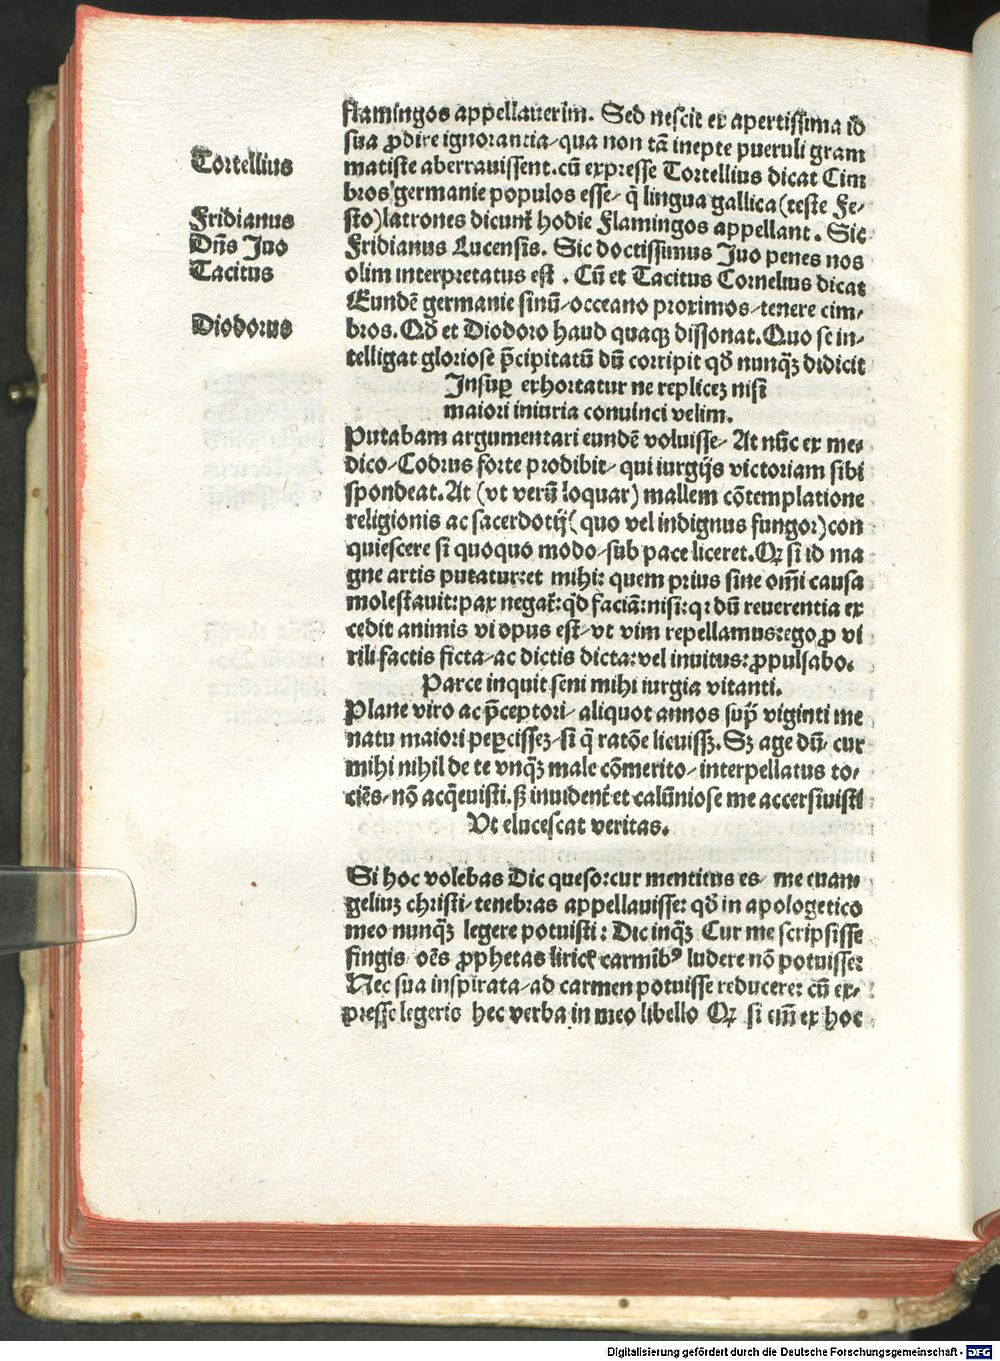 flamingos appellauerim. Sed nescit ex apertissima id
sua ꝓdire ignorantia/qua non tā inepte pueruli gram
Tortellius
matiste aberrauissent.cū expresse Tortellius dicat Cim
bros germanie populos esse/ q̄ lingua gallica (teste Fe/
Fridianus
sto) latrones dicunt hodie Flamingos appellant. Sic
Dn̄s Iuo
Fridianus Lucensis. Sic doctissimus Iuo penes nos
Tacitus
olim interpretatus est. Cū et Tacitus Cornelius dicat
Eundē germanie sinū/occeano proximos/tenere cim/
Diodorus
bros. Qd̄ et Diodoro haud quaqꝫ dissonat. Quo se in/
telligat gloriose p̄cipitatū dū corripit qd̄ nunqꝫ didicit
Insuꝑ exhortatur ne replicez nisi
maiori iniuria conuinci velim.
Putabam argumentari eundē voluisse/ At nūc ex me/
dico/Codrus forte prodibit/ qui iurgijs victoriam sibi
spondeat. At (vt verū loquar) mallem cōtemplatione
religionis ac sacerdotij( quo vel indignus fungor)con
quiescere si quoquo modo/sub pace liceret. Qꝫ si id ma
gne artis putatur:et mihi: quem prius sine om̄i causa
molestauit:pax negat̄:qd̄ faciā:nisi:qꝛ dū reuerentia ex
cedit animis vi opus est/vt vim repellamus:ego ꝓ vi
rili factis ficta/ac dictis dicta:vel inuitus:ꝓpulsabo.
Parce inquit seni mihi iurgia vitanti.
Plane viro ac p̄ceptori/ aliquot annos suꝑ viginti me
natu maiori peꝑcissez/si q̄ ratōe licuissꝫ. Sꝫ age dū/ cur
mihi nihil de te vnqꝫ male cōmerito/interpellatus to/
ciēs/nō acq̄euisti.sꝫ inuident̄ et calūniose me accersiuisti
Vt elucescat veritas.
Si hoc volebas Dic queso:cur mentitus es/ me euam
geliuꝫ christi/tenebras appellauisse: qd̄ in apologetico
meo nunqꝫ legere potuisti: Dic inqꝫ Cur me scripsisse
fingis/ oēs ꝓphetas liricꝭ carmibꝰ ludere nō potuisse:
Nec sua inspirata/ad carmen potuisse reducere: cū ex/
presse legeris hec verba in meo libello Qꝫ si em̄ ex hoc
Digitalisierung gefördert durch die Deutsche Forschungsgemeinschaft - DFG